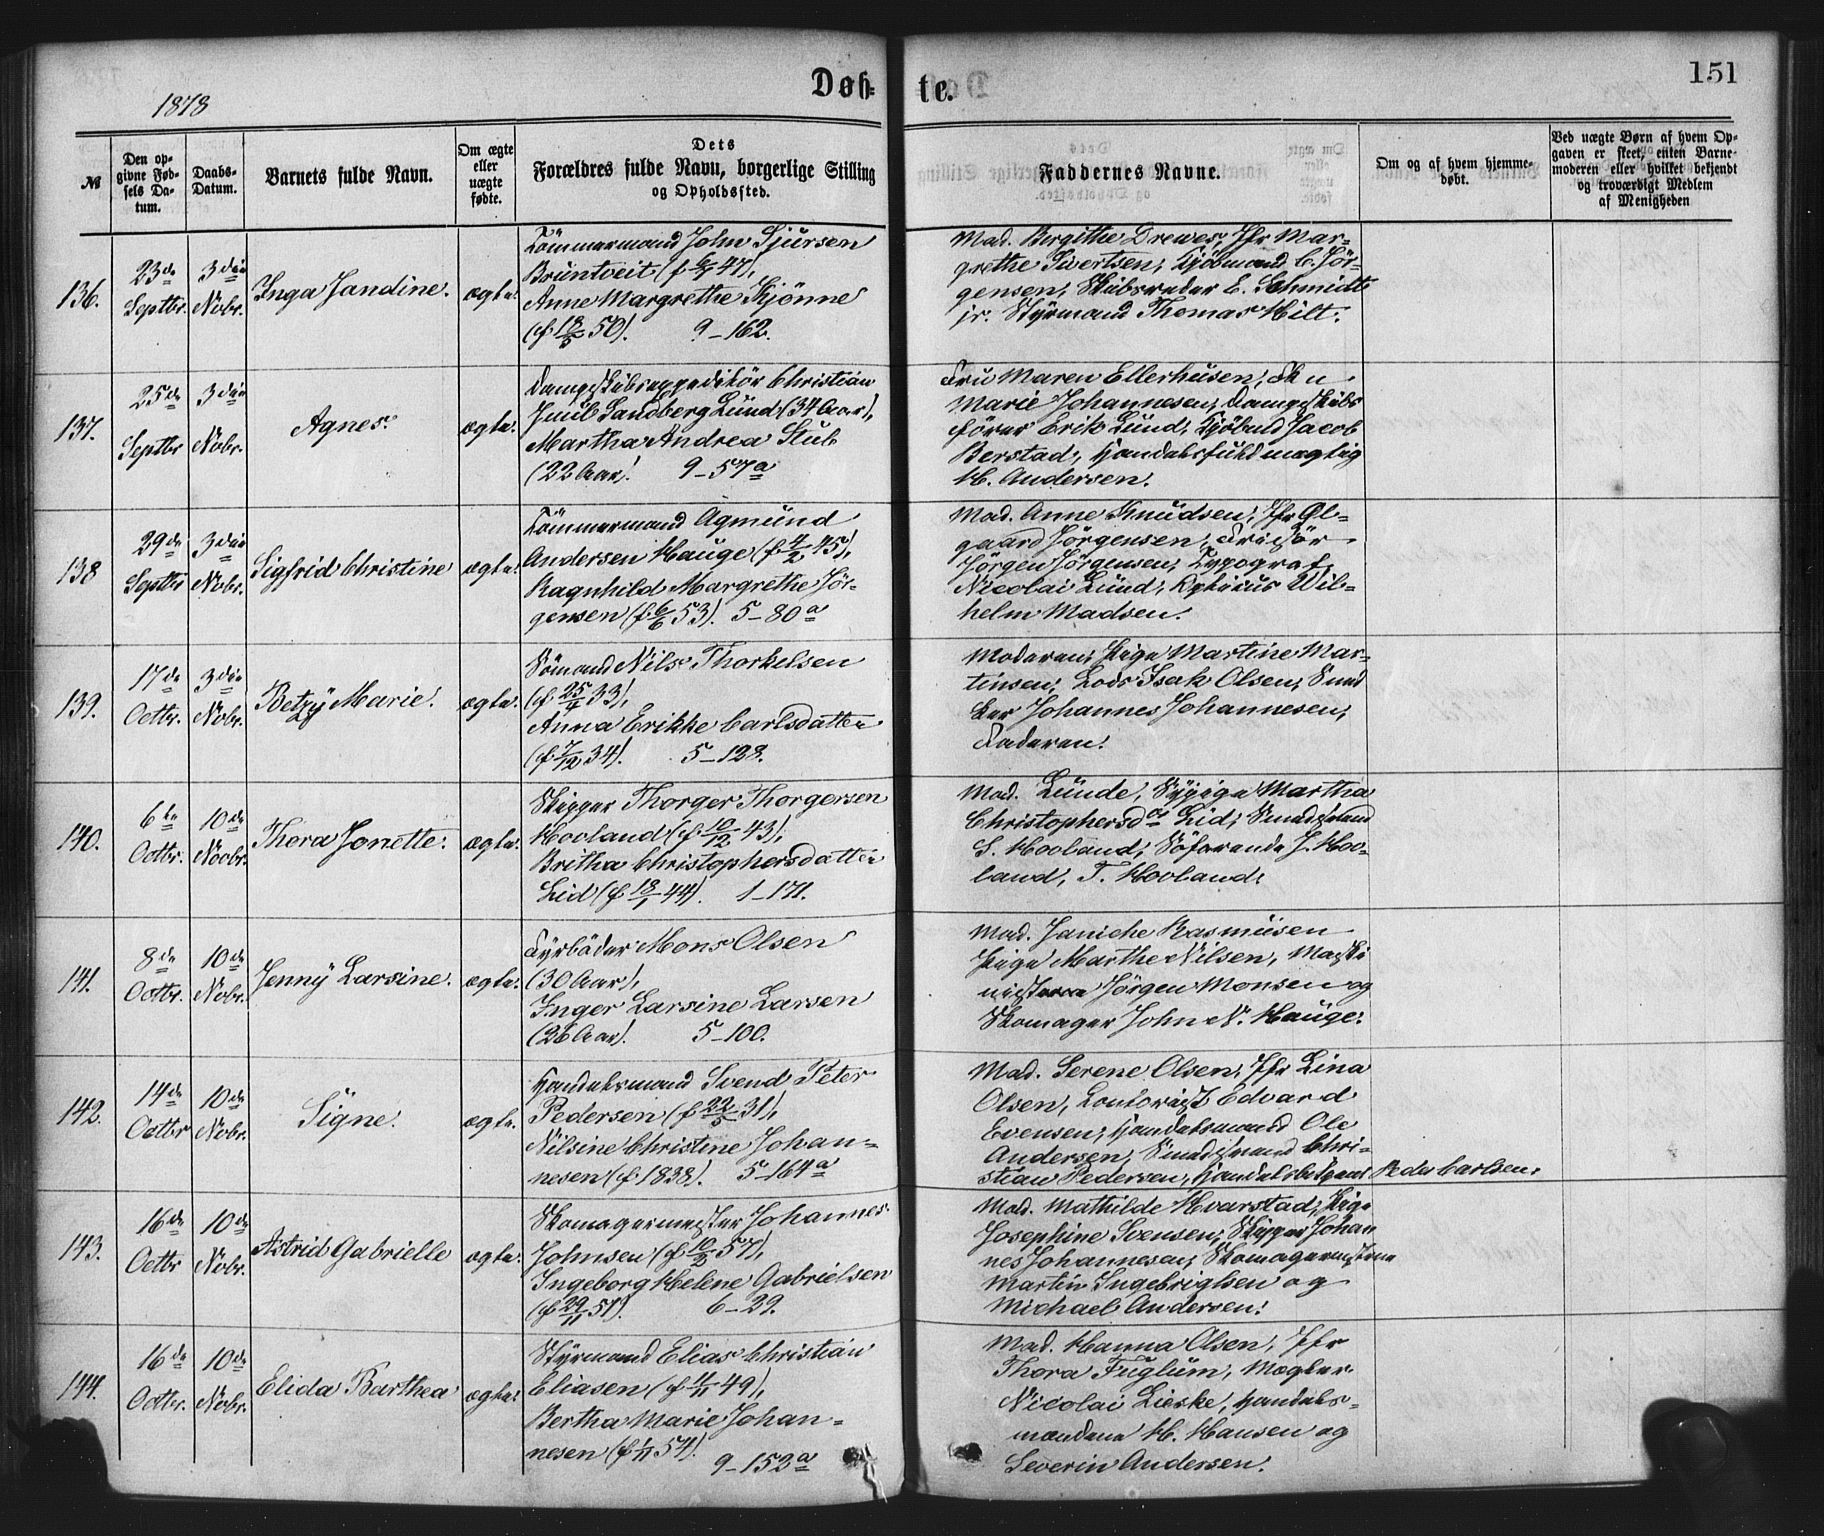 Døb- te.
151
1878
№
Den opgivne Fødsels Datum.
Daabs-Datum.
Barnets fulde Navn.
Om ægte eller uægte fødte.
Dets Forældres fulde Navn, borgerlige Stilling og Opholdssted.
Faddernes Navne.
Om og af hvem hjemmedøbt.
Ved uægte Børn af hvem Opgaven er skeet, enten Barnemoderen eller hvilket bekjendt og troværdigt Medlem af Menigheden
136. 23de Septbr. 3die Nobr. Inga Jandine. ægte.
Tömmermand John Sjursen
Bruntveit (f 6/5 47),
Anne Margrethe Kjönne
(f 18/5 50). 9-162.
Mad. Birgithe Drewes, Jfr Mar-
grethe Sivertsen, Kjöbmand C. Jör-
gensen, Skibsreder E. Schmidt
jr. Styrmand Thomas Hilt.
137. 25de Septbr 3die Nobr. Agnes. ægte.
Dampskibsexpeditör Christian
Juul Sandberg Lund (34 Aar),
Martha Andrea Stub
(22 Aar). 9-57a
Fru Maren Ellerhusen,
Marie Johannesen, Dampskibs
förer Erik Lund, Kjöbmd Jacob
Berstad, Handelsfuldmægtig
H. Andersen.
138 29de Septbr 3die Nobr. Sigfrid Christine ægte.
Tömmermand Agmund
Andersen Hauge (f 4/2 45),
Ragnhild Margrethe Jör-
gensen (f 6/6 53). 5-80a
Mad. Anne Knudsen, Jfr Ol-
gaard Jörgensen, Frisör
Jörgen Jörgensen, Typograf
Nicolai Lund, Wil-
helm Madsen.
139. 17de Octbr. 3die Nobr. Betzy Marie. ægte.
Sömand Nils Thorkelsen
(f 25/4 33),
Anna Erikke Carlsdatter
(f 7/12 34). 5-128.
Moderen, Pige Martine Mar-
tinsen, Lods Isak Olsen, Sned
ker Johannes Johannesen,
Faderen.
140. 6te Octbr. 10de Nobr. Thora Jonette. ægte.
Skipper Thorger Thorgersen
Hovland (f 10/12 43),
Britha Christophersdatter
Lid (f 18/1 44). 1-171.
Mad. Lunde, Sypige Martha
Christophersdr Lid, Strandsidder
S. Hovland, Söfarende J. Hov-
land, T. Hovland.
141. 8de Octbr. 10de Nobr. Jenny Larsine. ægte.
Fyrböder Mons Olsen
(30 Aar),
Inger Larsine Larsen
(26 Aar). 5-100.
Mad. Janiche Rasmusen
Pige Marthe Nilsen, Maski
nisterne Jörgen Monsen og
Skomager John N. Hauge.
142. 14de Octbr 10de Nobr. Signe. ægte.
Handelsmand Svend Peter
Pedersen (f 22/5 31),
Nilsine Christine Johan-
nesen (f 1838). 5-164a
Mad. Serene Olsen, Jfr Lina
Olsen, Contorist Edvard
Evensen, Handelsmand Ole
Andersen, Chri-
stian Pedersen, Handelsbetjent Peder Carlsen.
143. 16de Octbr 10de Nobr. Astrid Gabrielle ægte.
Skomagermester Johannes
Johnsen (f 10/2 57),
Ingeborg Helene Gabrielsen
(f 29/11 51). 6-29.
Mad. Mathilde Hvarstad, Pige
Josephine Svensen, Skipper Johan
nes Johannesen, Skomagermestrene
Martin Ingebrigtsen og
Michael Andersen.
144. 16de Octbr. 10de Nobr. Elida Barthea ægte.
Styrmand Elias Christian
Eliasen (f 4/11 49),
Bertha Marie Johan-
nesen (f 1/11 54). 9-152a
Mad. Hanna Olsen, Jfr
Thora Fuglum, Mægler
Nicolai Lieske, Handels-
mændene H. Hansen og
Severin Andersen.